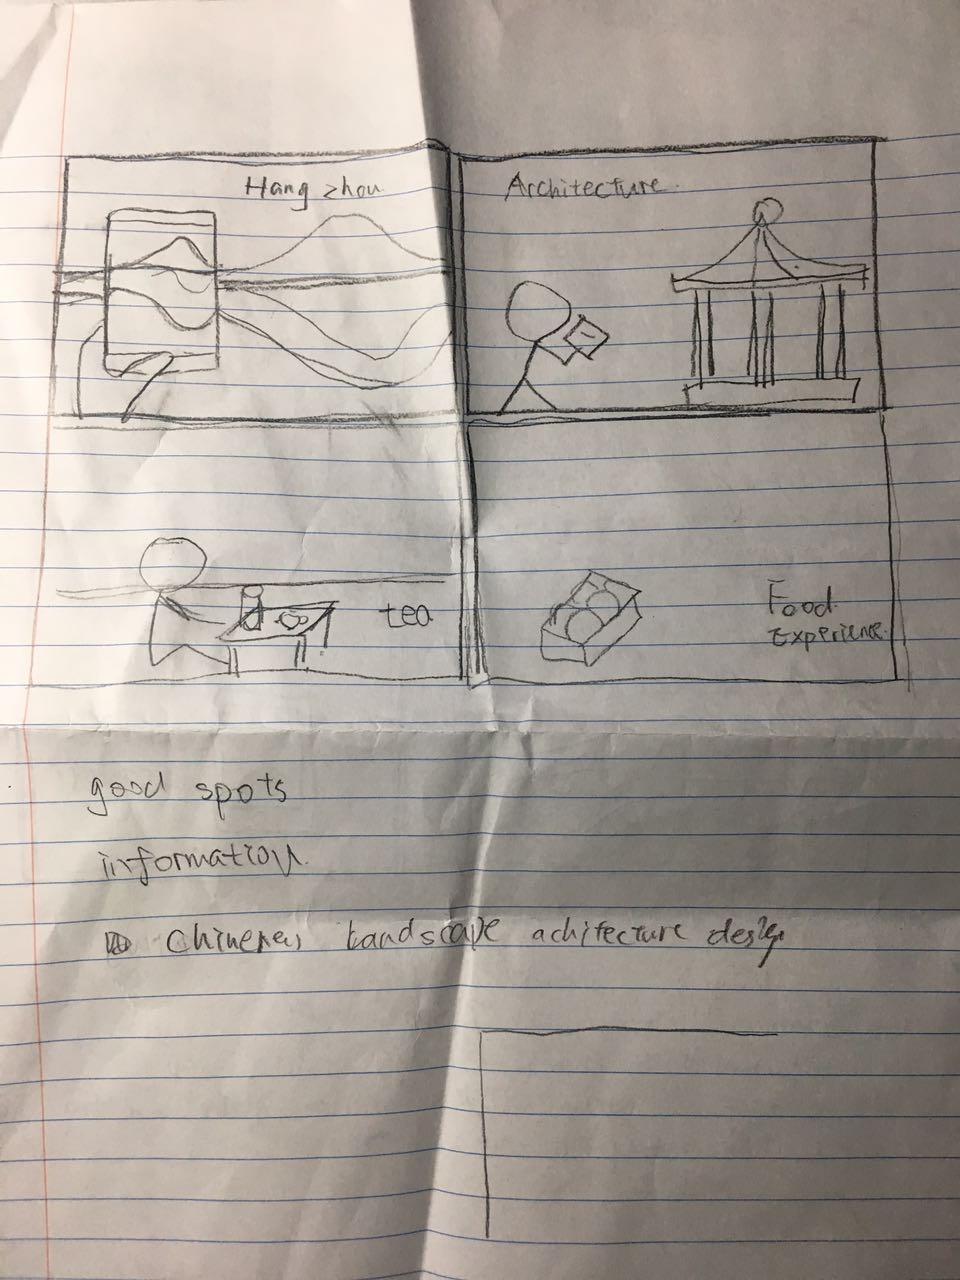 Hang zhou
Architecture.
tea
Food
Experience.
good spots
information.
landscape achitecture design